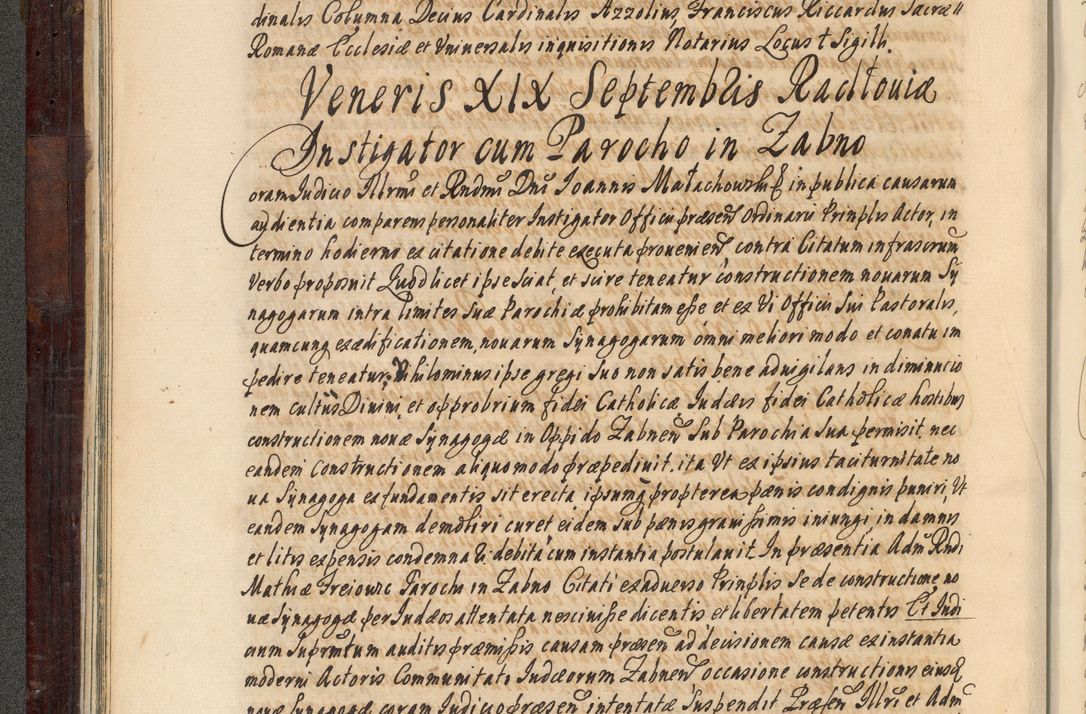 dinalis Columna Decius Cardinalis Azzolius, Franciscus Riccardus Sacræ
Romanæ Ecclesiæ et Vniversalis inquisitionis Notarius Locus t Sigilli.
Veneris XIX Septembris Raciłoviæ
Instigator cum Parocho in Zabno
Coram Iudicio Illrmi et Rndmi Dni Ioannis Małachowski E in publica causarum
audientia comparens personaliter Instigator Officii præsen Ordinarii Prinplis Actor, in
termino hodierno ex citatione debite executa prouenien, contra Citatum infrascrum
Verbo proposuit Quod licet ipse sciat, et scire teneatur constructionem nouarum Sy
nagogarum intra limites Suæ Parochiæ prohibitam esse et ex Vi Officii Sui Pastoralis,
quamcunq exædificationem, nouarum Synagogarum omni meliori modo et conatu im
pedire teneatur, Nihilominus ipse gregi Suo non satis bene aduigilans in diminutio
nem cultus Diuini, et opprobrium fidei Catholicæ Iudæis fidei Catholicæ hostibus
constructionem nouæ Synagogæ in Oppido Zabnen Sub Parochia Sua permisit, nec
eandem Constructionem aliquomodo præpediuit, ita Vt ex ipsius taciturnitate no
ua Synagoga ex fundamentis sit erecta, ipsumq propterea pænis condignis puniri, Vt
eandem Synagogam demoliri curet eidem sub pænis grauissimis iniungi in damnis
et litis expensis condemnari debita cum instantia postulauit. In præsentia Adm Rndi
Mathiæ Freiowic Parochi in Zabno Citati ex aduerso Prinplis Se de constructione no
uæ Synagogæ per Iudæos attentata nesciuisse dicentis et libertatem petentis Et Iudi
cium Suprmtum auditis præmissis causam præsen ad decisionem causæ ex instantia
moderni Actoris Communitati Iudæorum Zabnen occasione constructionis eiusq
nouæ Synagogæ coram Iudicio præsen intentatæ Suspendit Præsen Illri et Adm